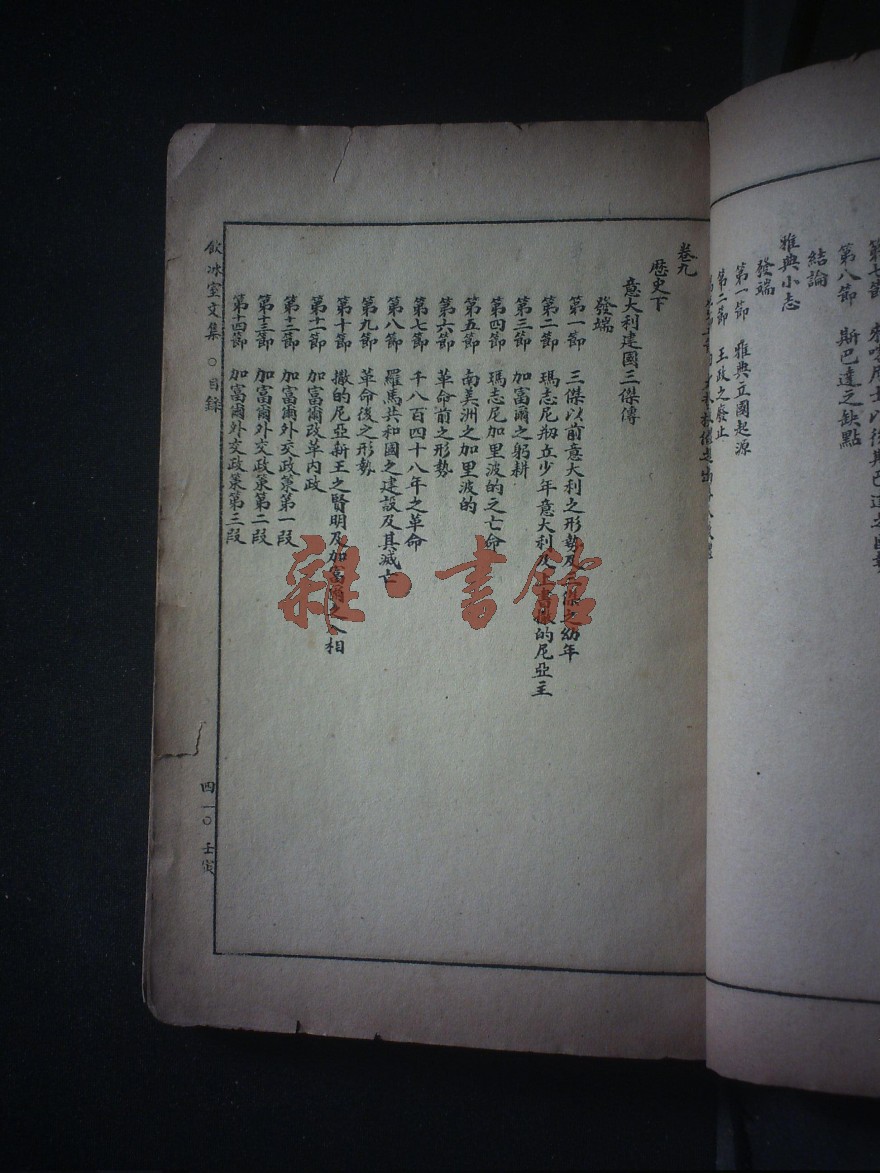 第七節
第八節 斯巴達之缺點
結論
雅典小志
發端
第一節 雅典立國起源
第二節 王政之廢止
卷九
歷史下
意大利建國三傑傳
發端
第一節 三傑以前意大利之形勢及三傑之幼年
第二節 瑪志尼刱立少年意大利及上書撒的尼亞王
第三節 加富爾之躬耕
第四節 瑪志尼加里波的之亡命
第五節 南美洲之加里波的
第六節 革命前之形勢
第七節 千八百四十八年之革命
第八節 羅馬共和國之建設及其滅亡
第九節 革命後之形勢
第十節 撒的尼亞新王之賢明及加富爾之入相
第十一節 加富爾改革內政
第十二節 加富爾外交政策第一段
第十三節 加富爾外交政策第二段
第十四節 加富爾外交政策第三段
飲冰室文集 ○目錄
四一○ 壬寅
雜·書館